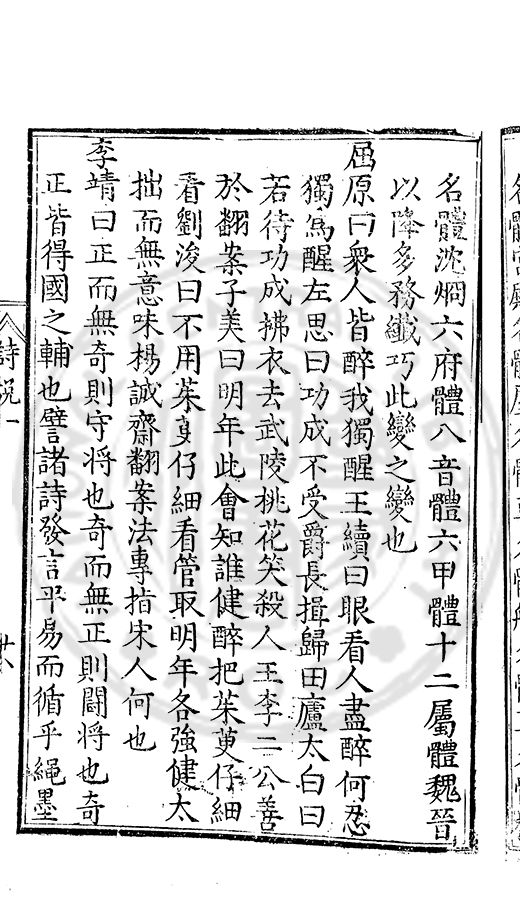 名體沈烱六府體八音體六甲體十二屬體魏晉
以降多務纖巧此變之變也
屈原曰衆人皆醉我獨醒王績曰眼看人盡醉何忍
獨爲醒左思曰功成不受爵長揖歸田廬太白曰
若待功成拂衣去武陵桃花笑殺人王李二公善
於翻案子美曰明年此會知誰健醉把茱萸仔細
看劉浚曰不用茱萸仔細看管取明年各強健太
拙而無意味楊誠齋翻案法專指宋人何也
李靖曰正而無奇則守将也奇而無正則鬪将也奇
正皆得國之輔也譬諸詩發言平易而循乎繩墨
詩説一